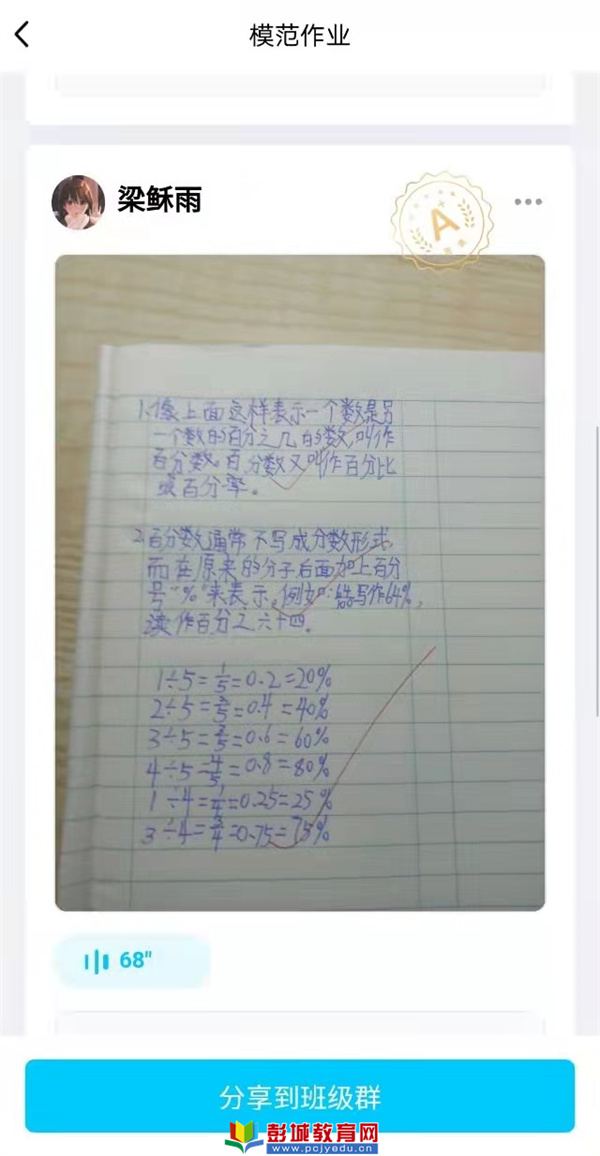 模范作业
梁稣雨
A
1、像上面这样表示一个数是另
一个数的百分之几的数,叫作
百分数。百分数又叫作百分比
或百分率。
2、百分数通常不写成分数形式,
而在原来的分子后面加上百分
号"%"来表示。例如:64/100写作64%,
读作百分之六十四.
1÷5=1/5=0.2=20%
2÷5=2/5=0.4=40%
3÷5=3/5=0.6=60%
4÷5=4/5=0.8=80%
1÷4=1/4=0.25=25%
3÷4=3/4=0.75=75%
68"
分享到班级群
彭城教育网
www.pcjyedu.cn